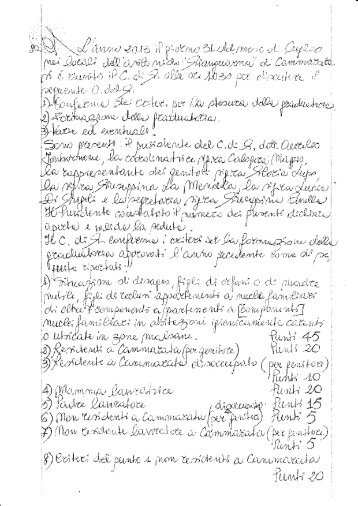 L'anno 2013 il giorno 31 del mese di Luglio
nei locali dell'asilo nido "Primavera" di Cammarata
si è riunito il C. di G. alle ore 10,30 per discutere il
seguente O. del G.
1) Conferma dei criteri per la stesura della graduatoria
2) Formazione della graduatoria.
3) Varie ed eventuali.
Sono presenti: il presidente del C. di G. dott. Aurelio
la coordinatrice sig.ra Calogera
la rappresentante dei genitori sig.ra Maria Lupo,
la sig.ra Giuseppina La Mendola, la sig.ra
e la segretaria sig.ra Giuseppina
Il Presidente constatato il numero dei presenti dichiara
aperta e valida la seduta.
Il C. di G. conferma i criteri per la formazione della
graduatoria approvati l'anno precedente come di se-
guito riportati:
1) Situazione di disagio, figli di orfani o di madre
nubile, figli di reclusi appartenenti a nuclei familiari
di oltre componenti appartenenti a [componenti]
nuclei familiari in abitazioni igienicamente carenti
o ubicate in zone malsane. Punti 45
2) Residenti a Cammarata (per genitore) Punti 20
3) Residente a Cammarata disoccupato (per genitore)
Punti 10
4) Mamma lavoratrice Punti 20
5) Padre lavoratore Punti 15
6) Non residenti a Cammarata (per genitore) Punti 5
7) Non residente lavoratore a Cammarata (per genitore)
Punti 5
8) Criteri del punto 1 non residenti a Cammarata
Punti 20